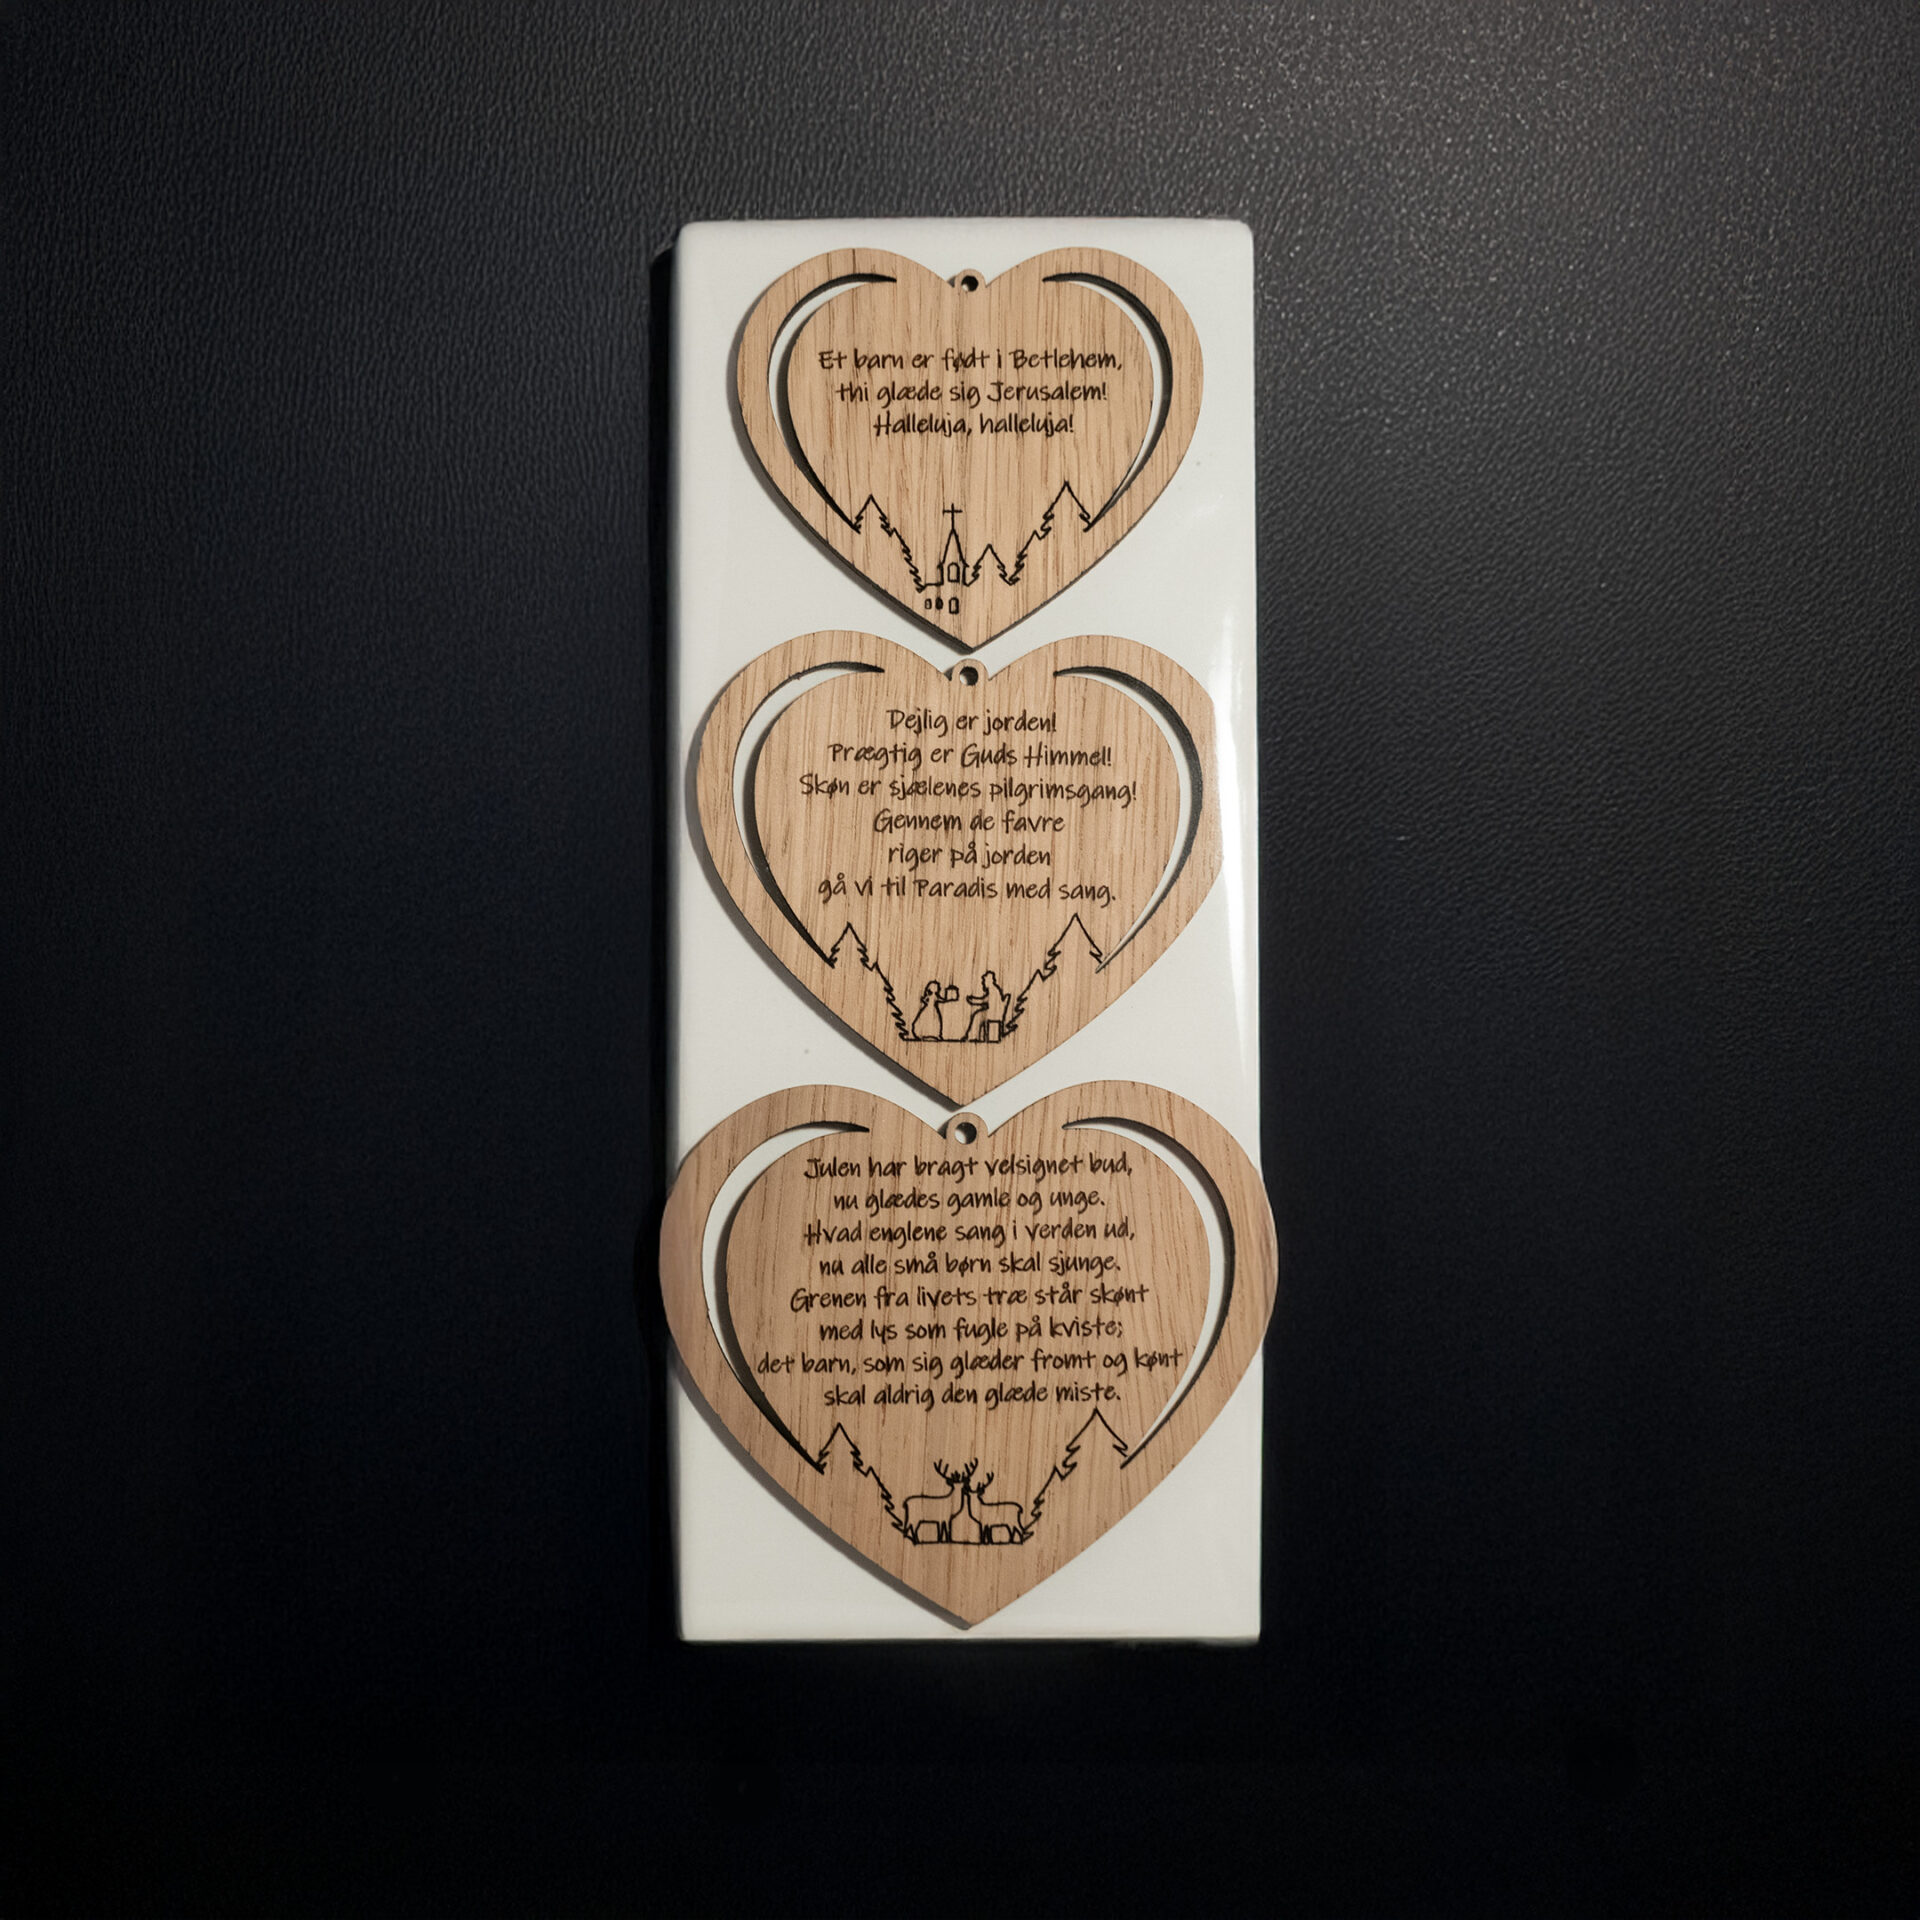 Et barn er født i Betlehem,
thi glæde sig Jerusalem!
Halleluja, halleluja!
Dejlig er jorden!
Prægtig er Guds Himmel!
Skøn er sjælenes pilgrimsgang!
Gennem de favre
riger på jorden
gå vi til Paradis med sang.
Julen har bragt velsignet bud,
nu glædes gamle og unge.
Hvad englene sang i verden ud,
nu alle små børn skal sjunge.
Grenen fra livets træ står skønt
med lys som fugle på kviste;
det barn, som sig glæder fromt og kønt
skal aldrig den glæde miste.